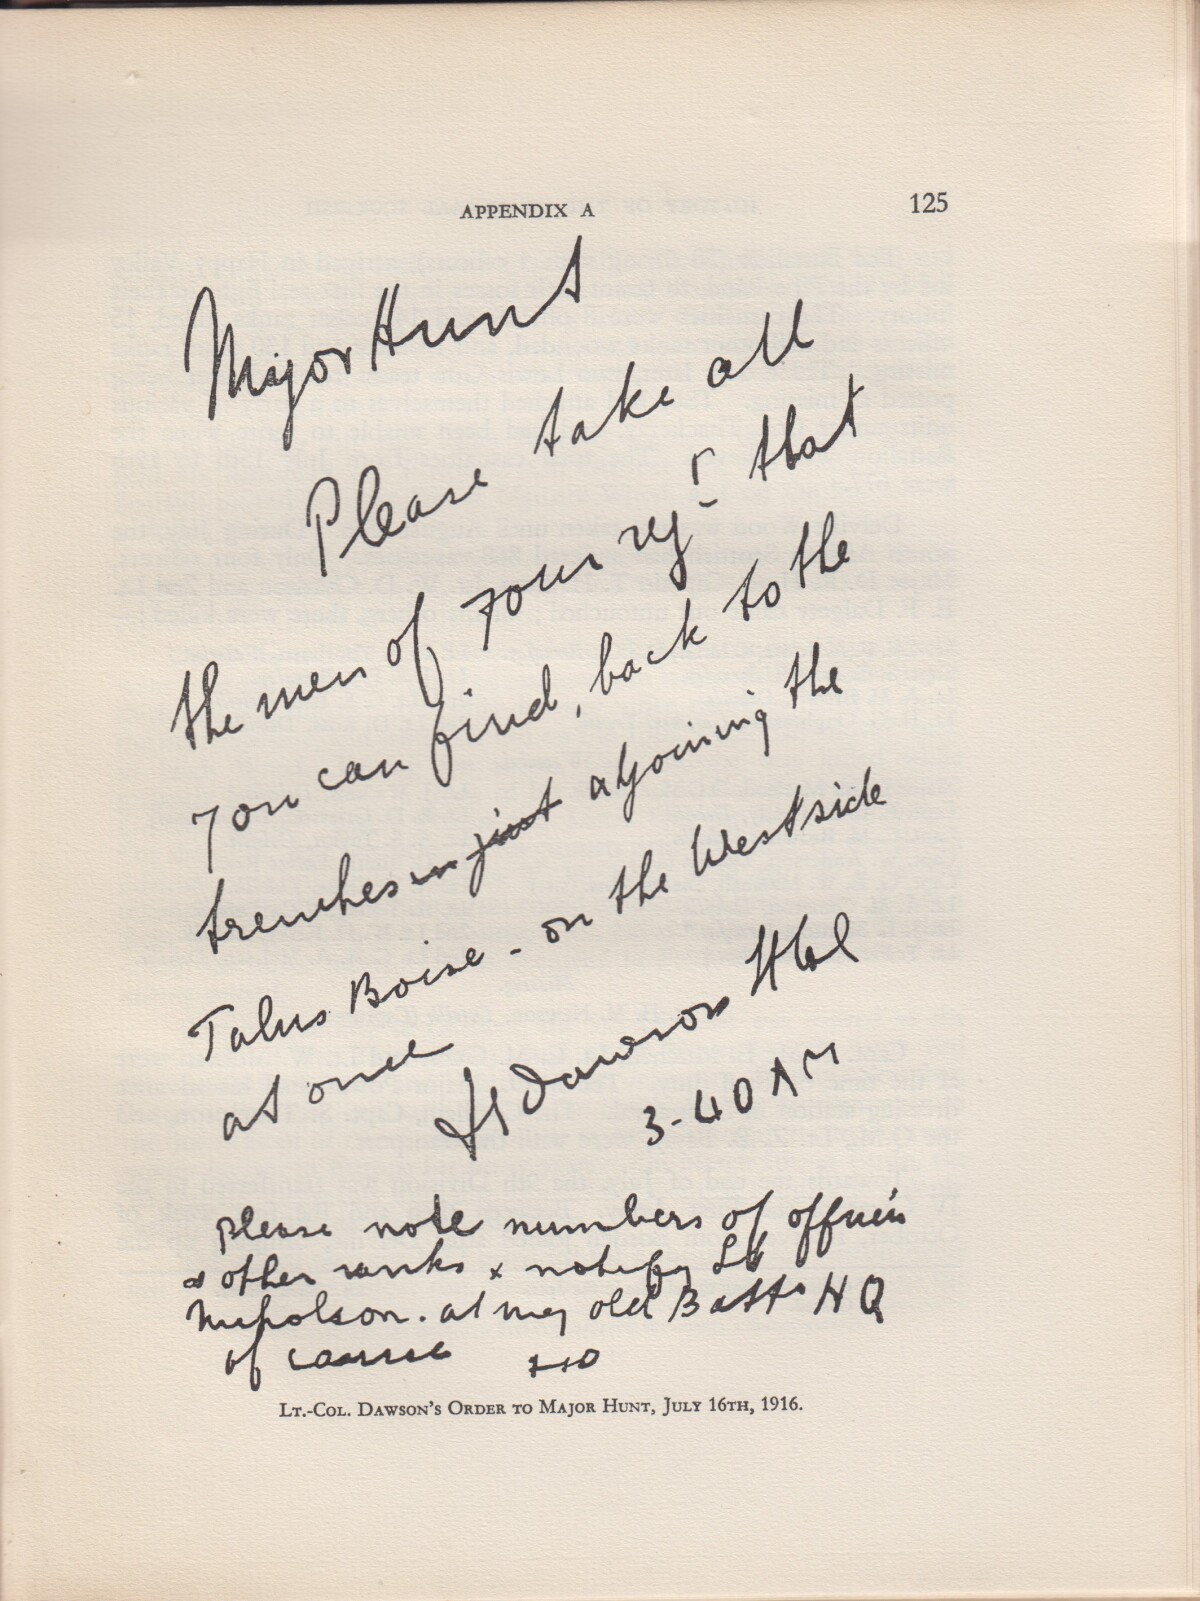 APPENDIX A
125
Major Hunt
Please take all
the men of your regt that
you can find, back to the
trenches in just adjoining the
Talus Boise - on the West side
at once
Dawson
3-40 AM
please note numbers of officers
& other ranks & notify Lt
Nicholson. at my old Battn HQ
of course
LT.-COL. DAWSON'S ORDER TO MAJOR HUNT, JULY 16TH, 1916.